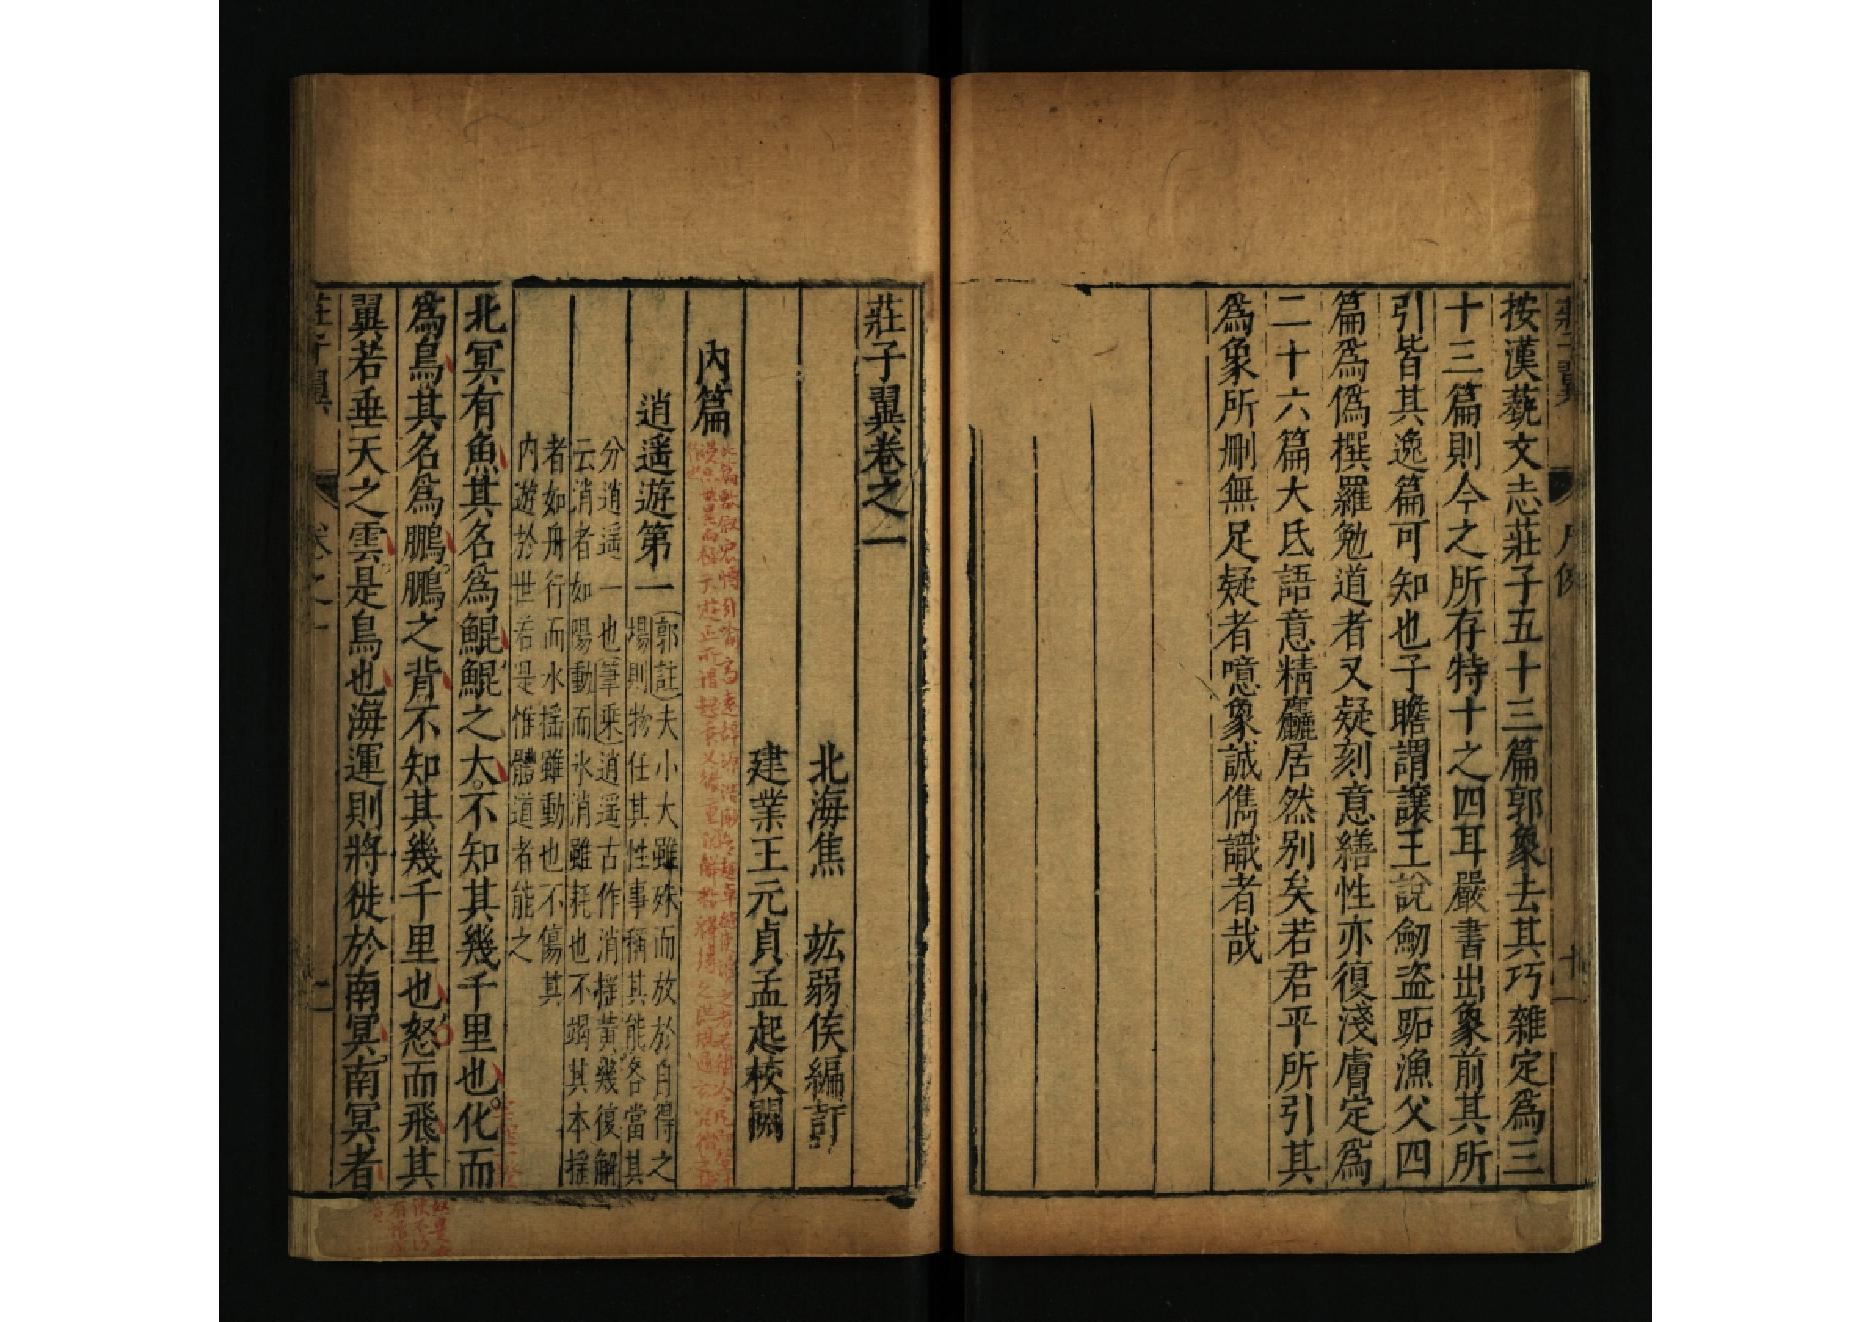 按漢藝文志莊子五十三篇郭象去其巧雜定為三
十三篇則今之所存特十之四耳嚴書出象前其所
引皆其逸篇可知也子瞻謂讓王說劒盜跖漁父四
篇為偽撰羅勉道者又疑刻意繕性亦復淺膚定為
二十六篇大氐語意精麤居然別矣若君平所引其
為象所刪無足疑者噫象誠儁識者哉
莊子翼卷之一
北海焦 竑弱侯編訂
建業王元貞孟起校閱
內篇
逍遥遊第一
郭註夫小大雖殊而放於自得之
場則物任其性事稱其能各當其
分逍遥一也筆乘逍遥古作消摇黃幾復解
云消者如陽動而氷消雖耗也不竭其本摇
者如舟行而水摇雖動也不傷其
內遊於世若是惟體道者能之
北冥有魚其名為鯤鯤之大不知其幾千里也化而
為鳥其名為鵬鵬之背不知其幾千里也怒而飛其
翼若垂天之雲是鳥也海運則將徙於南冥南冥者
莊子翼 卷之一 一